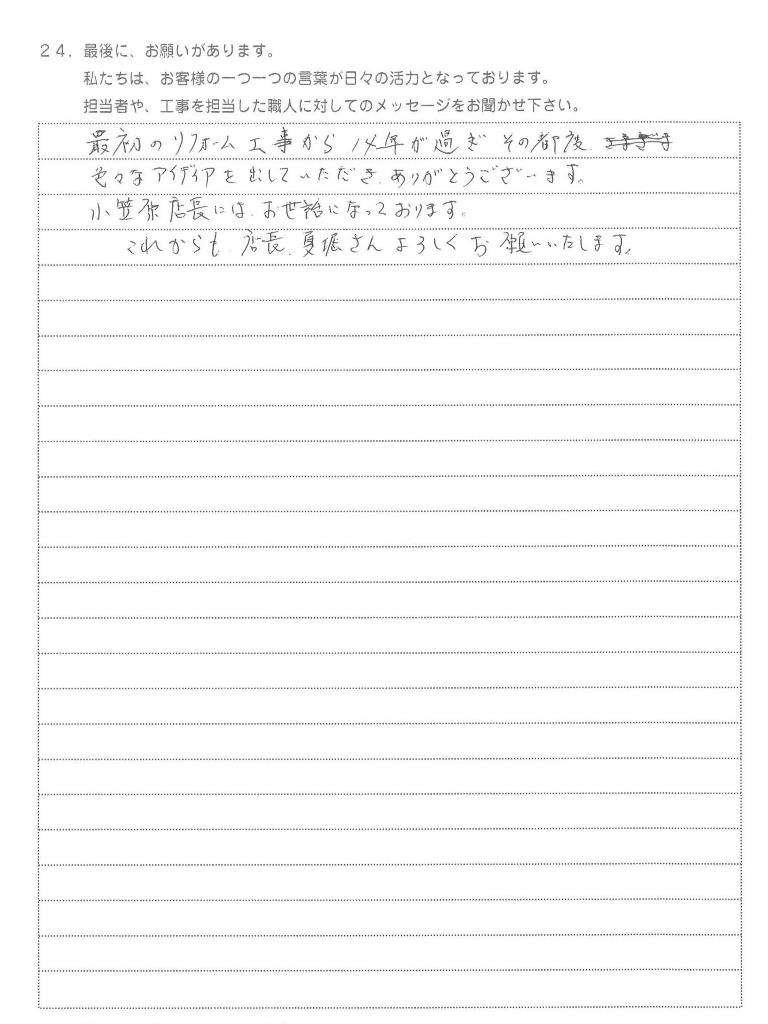 24．最後に、お願いがあります。
私たちは、お客様の一つ一つの言葉が日々の活力となっております。
担当者や、工事を担当した職人に対してのメッセージをお聞かせ下さい。
最初のリフォーム工事から14年が過ぎその都度、
色々なアイディアを出していただき、ありがとうございます。
小笠原店長には、お世話になっております。
これからも、店長、夏堀さんよろしくお願いいたします。